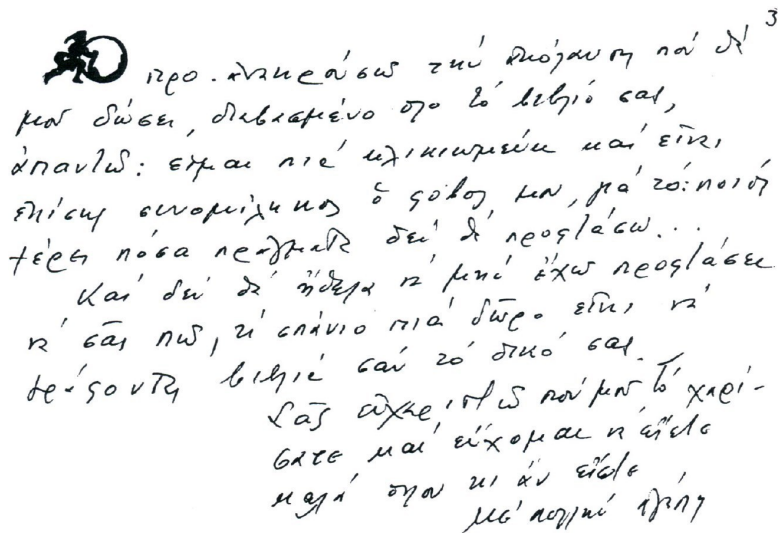 3
προ. ανακρούσω τήν ἀπόλαυση πού θά
μοῦ δώσει, διαβασμένο ὅλο τό βιβλίο σας,
ἀπαντῶ: εἶμαι πιά ἡλικιωμένη καί εἶναι
ἐπίσης συνομήλικος ὁ φόβος μου, γιά τό: ποιός
ξέρει πόσα πράγματα δέν θά προφτάσω...
Καί δέν θά ἤθελα νά μήν ἔχω προφτάσει
νά σᾶς πῶ, τί σπάνιο πιά δῶρο εἶναι νά
γράφονται βιβλία σάν τό δικό σας.
Σᾶς εὐχαριστῶ πού μοῦ τό χαρί-
σατε καί εὔχομαι νά εἶστε
καλά ὅπου κι ἄν εἶστε
Μέ πολλή ἀγάπη